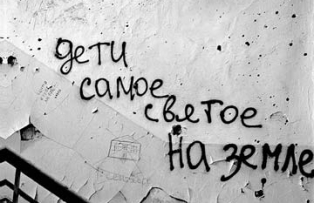 дети
самое
святое
на земле